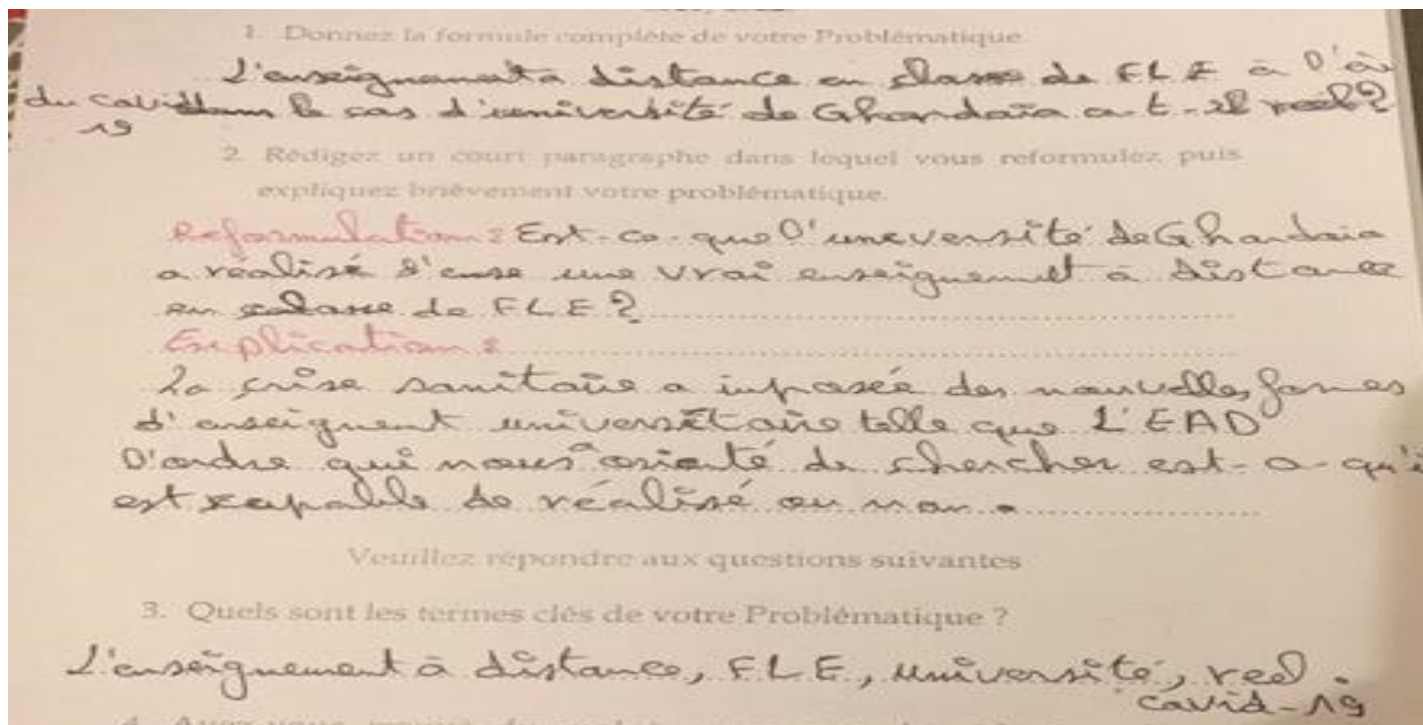 1. Donnez la formule complète de votre Problématique.
L'enseignement à distance en classe de FLE à l'
du covid dans le cas d'université de Ghardaïa a-t-il réel?
19
2. Rédigez un court paragraphe dans lequel vous reformulez puis
expliquez brièvement votre problématique.
Reformulation : Est-ce-que l'uneversité de Ghardaia
a réalisé une vrai enseignemet à distance
en classe de FLE ?
Explication :
La crise sanitaire a imposée des nouvelles formes
d'enseignent universitaire telle que L'EAD
D'ordre qui nous orienté de chercher est-
est capable de réalisé ou non.
Veuillez répondre aux questions suivantes
3. Quels sont les termes clés de votre Problématique ?
L'enseignement à distance, FLE, université, reel.
covid-19